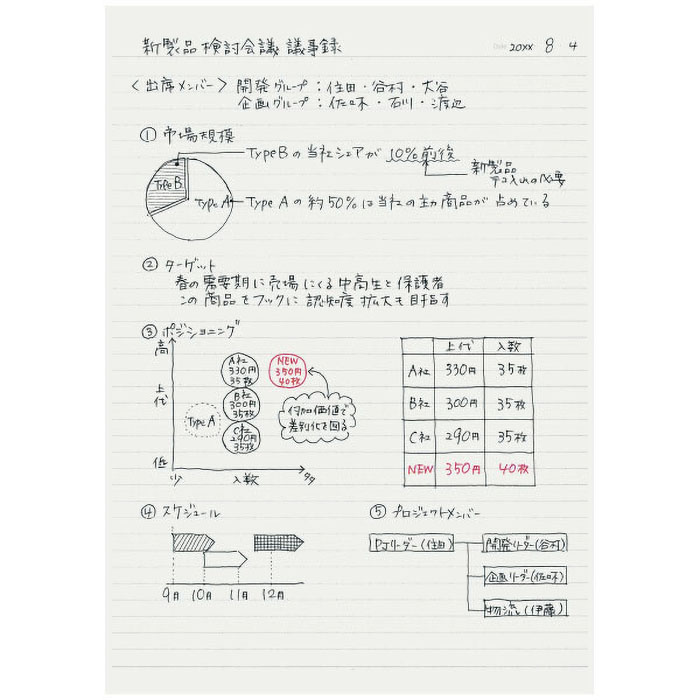 新製品検討会議 議事録
Date 20XX 8 ・ 4
〈出席メンバー〉 開発グループ：住田・谷村・大谷
企画グループ：佐々木・石川・渡辺
① 市場規模
Type Bの当社シェアが 10%前後
新製品
テコ入れの必要
Type B
Type A
Type Aの約50%は当社の主力商品が占めている
② ターゲット
春の需要期に売場にくる中高生と保護者
この商品をフックに認知度拡大も目指す
③ ポジショニング
高
上代
低
少
入数
多
A社
330円
35枚
B社
300円
35枚
C社
290円
35枚
NEW
350円
40枚
Type A
付加価値で
差別化を図る
上代 入数
A社 330円 35枚
B社 300円 35枚
C社 290円 35枚
NEW 350円 40枚
④ スケジュール
9月 10月 11月 12月
⑤ プロジェクトメンバー
PJリーダー(住田)
開発リーダー(谷村)
企画リーダー(佐々木)
物流(伊藤)